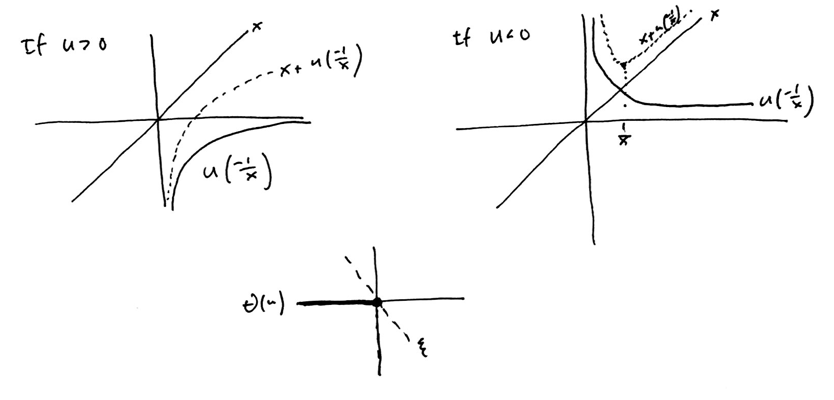 If u > 0
x
x + u(-1/x)
u(-1/x)
If u < 0
x + u(-1/x)
x
u(-1/x)
1/x
Θ(u)
ξ